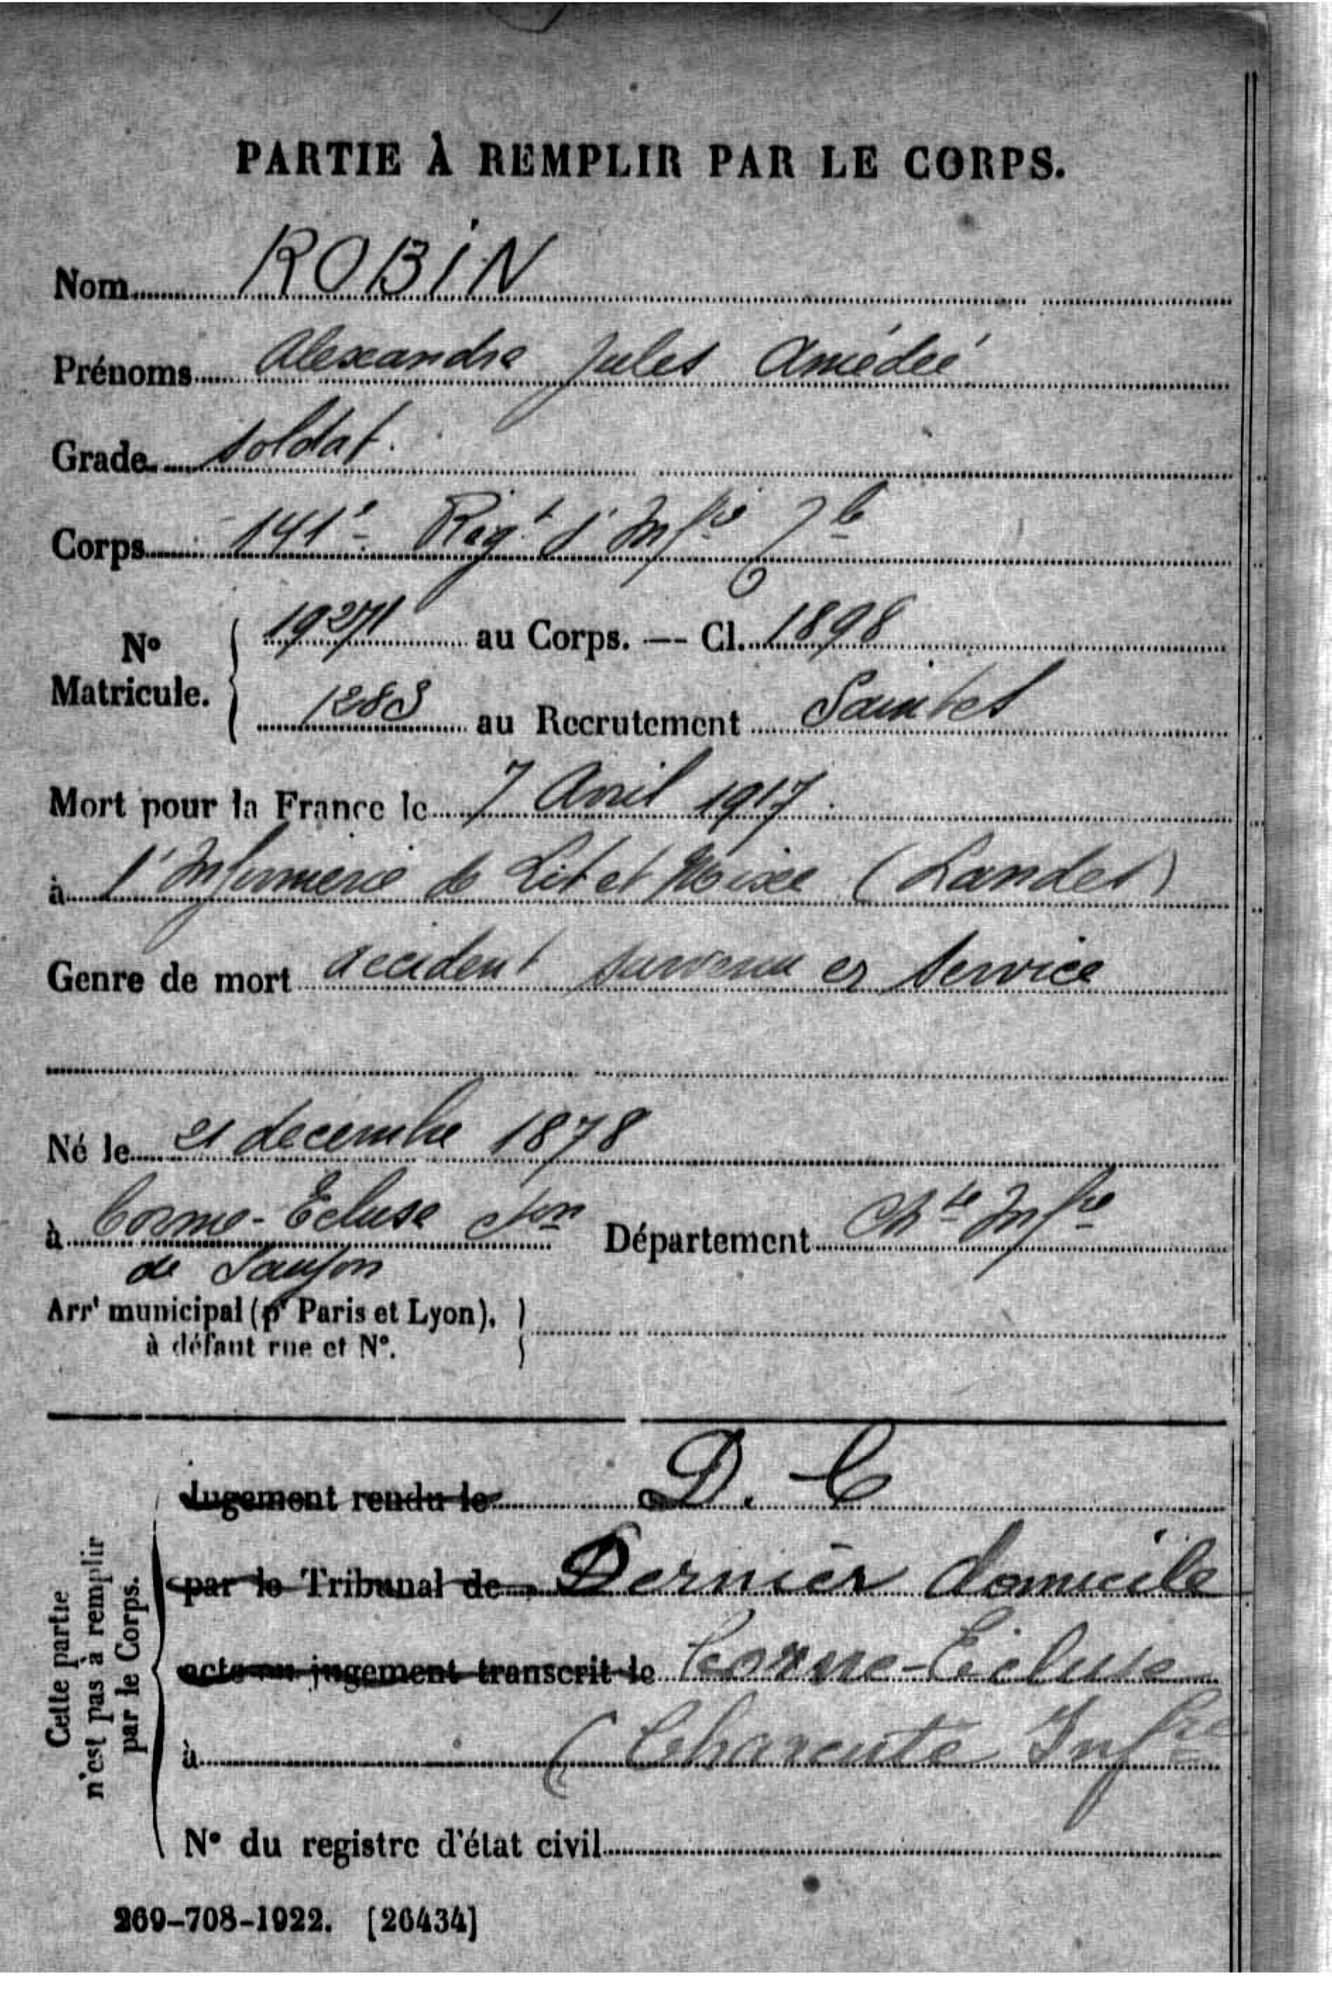 PARTIE À REMPLIR PAR LE CORPS.
Nom ROBIN
Prénoms Alexandre Jules Amédée
Grade soldat.
Corps 141e Regt d'Infie Tle
No Matricule. 19271 au Corps. — Cl. 1898
1283 au Recrutement Saintes
Mort pour la France le 7 Avril 1917.
à l'Infirmerie de Lit et Mixe (Landes)
Genre de mort accident survenu en service
Né le 21 decembre 1878
à Corme-Ecluse cton Département Chte Infre
de Saujon
Arrt municipal (pr Paris et Lyon),
à défaut rue et N°.
Cette partie
n'est pas à remplir
par le Corps.
Jugement rendu le D. C
par le Tribunal de Dernier domicile
acte ou jugement transcrit le Corme-Ecluse
à (Charente Infre
N° du registre d'état civil
269-708-1922. [26434]